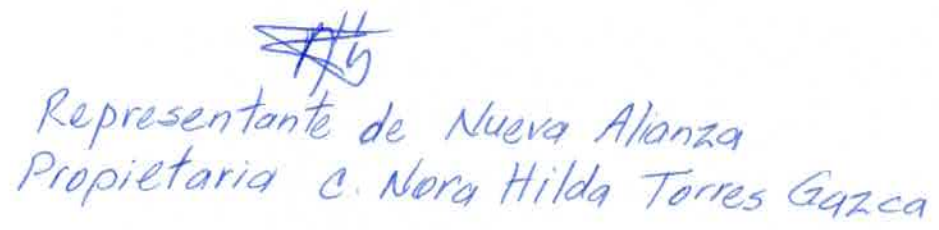 Representante de Nueva Alianza
Propietaria C. Nora Hilda Torres Gazca